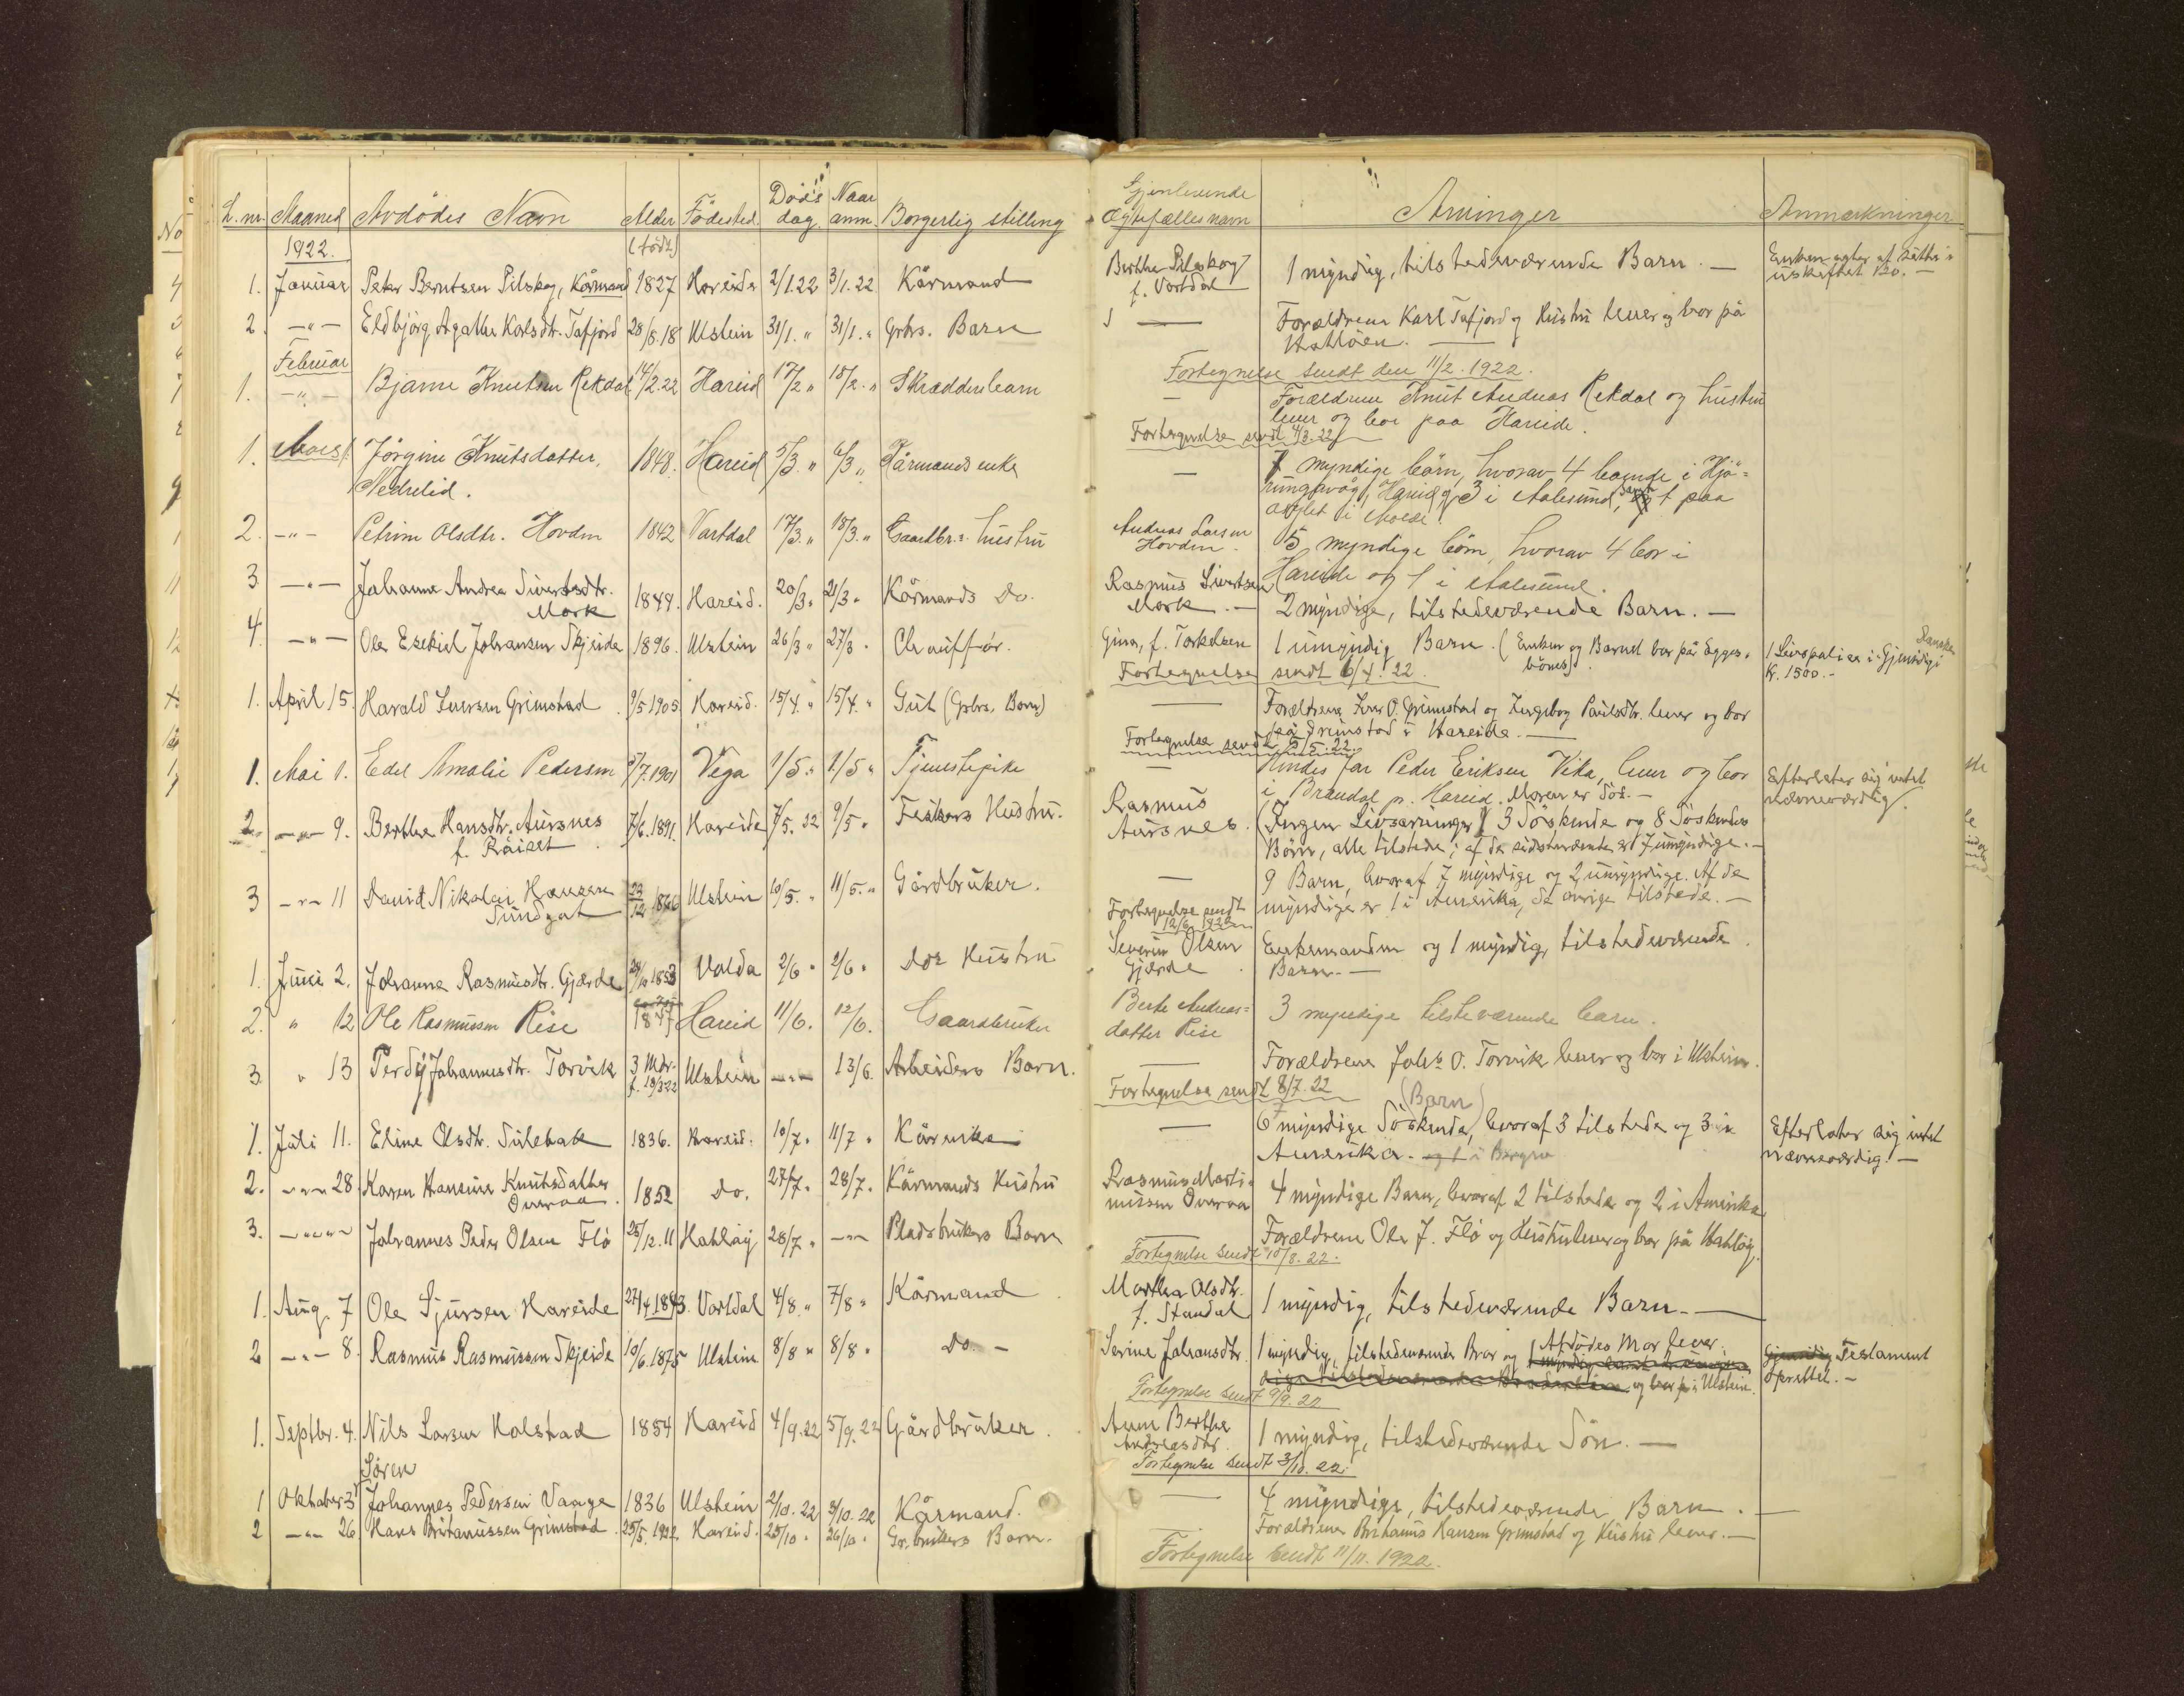 L. nr. Maaned Avdödes Navn Alder (födt) Födested. Döds dag. Naar anm. Borgerlig stilling Gjenlevende Ægtefælles navn Arvinger Anmærkninger
1922.
1. Januar Peter Berntsen Pilskog, Kårmand 1837 Hareide 2/1.22 3/1.22 Kårmand Berthe Pilskog f. Vartdal 1 myndig, tilstedeværende Barn. — Enken agter at sitte i uskiftet Bo. —
2. —"— Eldbjörg Agathe Karlsdtr. Tafjord 28/8.18 Ulstein 31/1. " 31/1. " Grbrs. Barn — Forældrene Karl Tafjord og Hustru lever og bor på Hatlöen. —
Fortegnelse sendt den 11/2. 1922.
Februar
1. —"— Bjarne Knutsen Rekdal 14/2.22 Hareid 17/2 " 18/2. " Skrædderbarn — Forældrene Knut Andreas Rekdal og hustru lever og bor paa Hareide.
Fortegnelse sendt 4/3.22
1. Mars Jörgine Knutsdatter, Nedrelid. 1848. Hareid 5/3. " 6/3 " Kårmands enke — myndige börn, hvorav 4 boende i Hjörungavåg, Hareid og 3 i Aalesund, samt 1 paa
2. —"— Petrine Olsdtr. Hovden 1842 Vartdal 17/3. " 18/3. " Gaardbr.s hustru Andreas Larsen Hovden. 5 myndige börn, hvorav 4 bor i Hareide og 1 i Aalesund.
3. —"— Johanne Andrea Sivertsdtr. Mork 1844. Hareid. 20/3. 21/3 " Kårmands Do. Rasmus Sivertsen Mork. — 2 myndige, tilstedeværende Barn. —
4. —"— Ole Esekiel Johansen Skjeide 1896. Ulstein 26/3 " 27/3 " Chauffør. Gina, f. Torkelsen 1 umyndig Barn. (Enken og Barnet bor på Eggesbönes). 1 Livspolise i Gjensidige Kr. 1500.-
Fortegnelse sendt 6/4. 22.
1. April 15. Harald Iversen Grimstad 9/5 1905 Hareid. 15/4. " 15/4. " Gut (Grbrs. Barn) — Forældrene Iver O. Grimstad og Ingebog Paulsdtr. lever og bor på Grimstad i Hareide. —
Fortegnelse sendt 5/5.22.
1. Mai 1. Edel Amalie Pedersen 5/7.1901 Vega 1/5. " 1/5 " Tjenestepike — Hendes far Peder Eriksen Vika, lever og bor i Brandal pr. Hareid. Moren er död. — Efterlater sig intet nævneværdig.
2. —"— 9. Berthe Hansdtr. Aursnes f. Råiset 7/6.1891. Hareide 7/5. 22 9/5 " Fiskers Hustru. Rasmus Aursnes. (Ingen Livsarvinger) 3 Söskende og 8 Söskendes Börn, alle tilstede; af de sidstnævnte er 7 umyndige. —
3 —"— 11 David Nikolai Hansen Sundgot 23/12 1866 Ulstein 10/5. " 11/5. " Gårdbruker. — 9 Barn, hvoraf 7 myndige og 2 umyndige. Af de myndige er 1 i Amerika, de övrige tilstede. —
Fortegnelse sendt 12/6 1922
1. Juni 2. Johanna Rasmusdtr. Gjærde 24/10 1853 Volda 2/6 " 2/6 " Dos Hustru Severin Olsen Gjærde. Enkemanden og 1 myndig, tilstedeværende Barn. —
2. " 12 Ole Rasmussen Rise 1847 Hareid 11/6. 12/6. Gaardbruker Berte Andreasdatter Rise 3 myndige tilsteværende barn.
3. " 13 Perdy Johannesdtr. Torvik 3 Mdr. f. 10/3 22 Ulstein —"— 13/6. Arbeiders Barn. — Forældrene Johs. O. Torvik lever og bor i Ulstein.
Fortegnelse sendt 8/7. 22
1. Juli 11. Eline Olsdtr. Sulebak 1836. Hareid. 10/7 " 11/7 " Kårenke — 6 myndige Söskende, (Barn) hvoraf 3 tilstede og 3 i Amerika. og 1 i Bergen Efterlater sig intet nævneværdig. —
2. —"— 28. Karen Hansine Knutsdatter Overaa. 1852 Do. 27/7. 28/7. Kårmands Hustru Rasmus Martinussen Overaa 4 myndige Barn, hvoraf 2 tilstede og 2 i Amerika
3. —"— Johannes Peder Olsen Flö 25/12.11 Hatlöy 28/7 " —"— Pladsbrukers Barn Forældrene Ole J. Flö og Hustru lever og bor på Hatlöy.
Fortegnelse sendt 10/8. 22.
1. Aug. 7 Ole Sjursen Hareide 27/4 1843. Vartdal 4/8. " 7/8 " Kårmand Martha Olsdtr. f. Standal 1 myndig, tilstedeværende Barn. —
2 —"— 8. Rasmus Rasmussen Skjeide 10/6.1875 Ulstein 8/8 " 8/8 " Do. — Serine Johansdtr. 1 myndig, tilstedeværende Bror og Afdödes Mor lever. og bor i Ulstein. Testament oprettet. —
Fortegnelse sendt 9/9. 22
1. Septbr. 4. Nils Larsen Kolstad 1854 Hareid 4/9.22 5/9.22 Gårdbruker. Anne Berthe Andreasdtr. 1 myndig, tilstedeværende Sön. —
Fortegnelse sendt 3/10. 22.
1 Oktober 3 Sören Johannes Pedersen Vaage 1836 Ulstein 2/10. 22 3/10. 22 Kårmand. — 4 myndige, tilstedeværende Barn. —
2 —"— 26. Hans Britanussen Grimstad 25/5. 1922. Hareid. 25/10 " 26/10 " Gr. brukers Barn. Forældrene Britanus Hansen Grimstad og Hustru lever. —
Fortegnelse sendt 11/11. 1922.